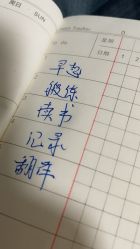 周日 SUN
Tracker
星期
日期 1 2
早起
锻炼
读书
记录
翻译